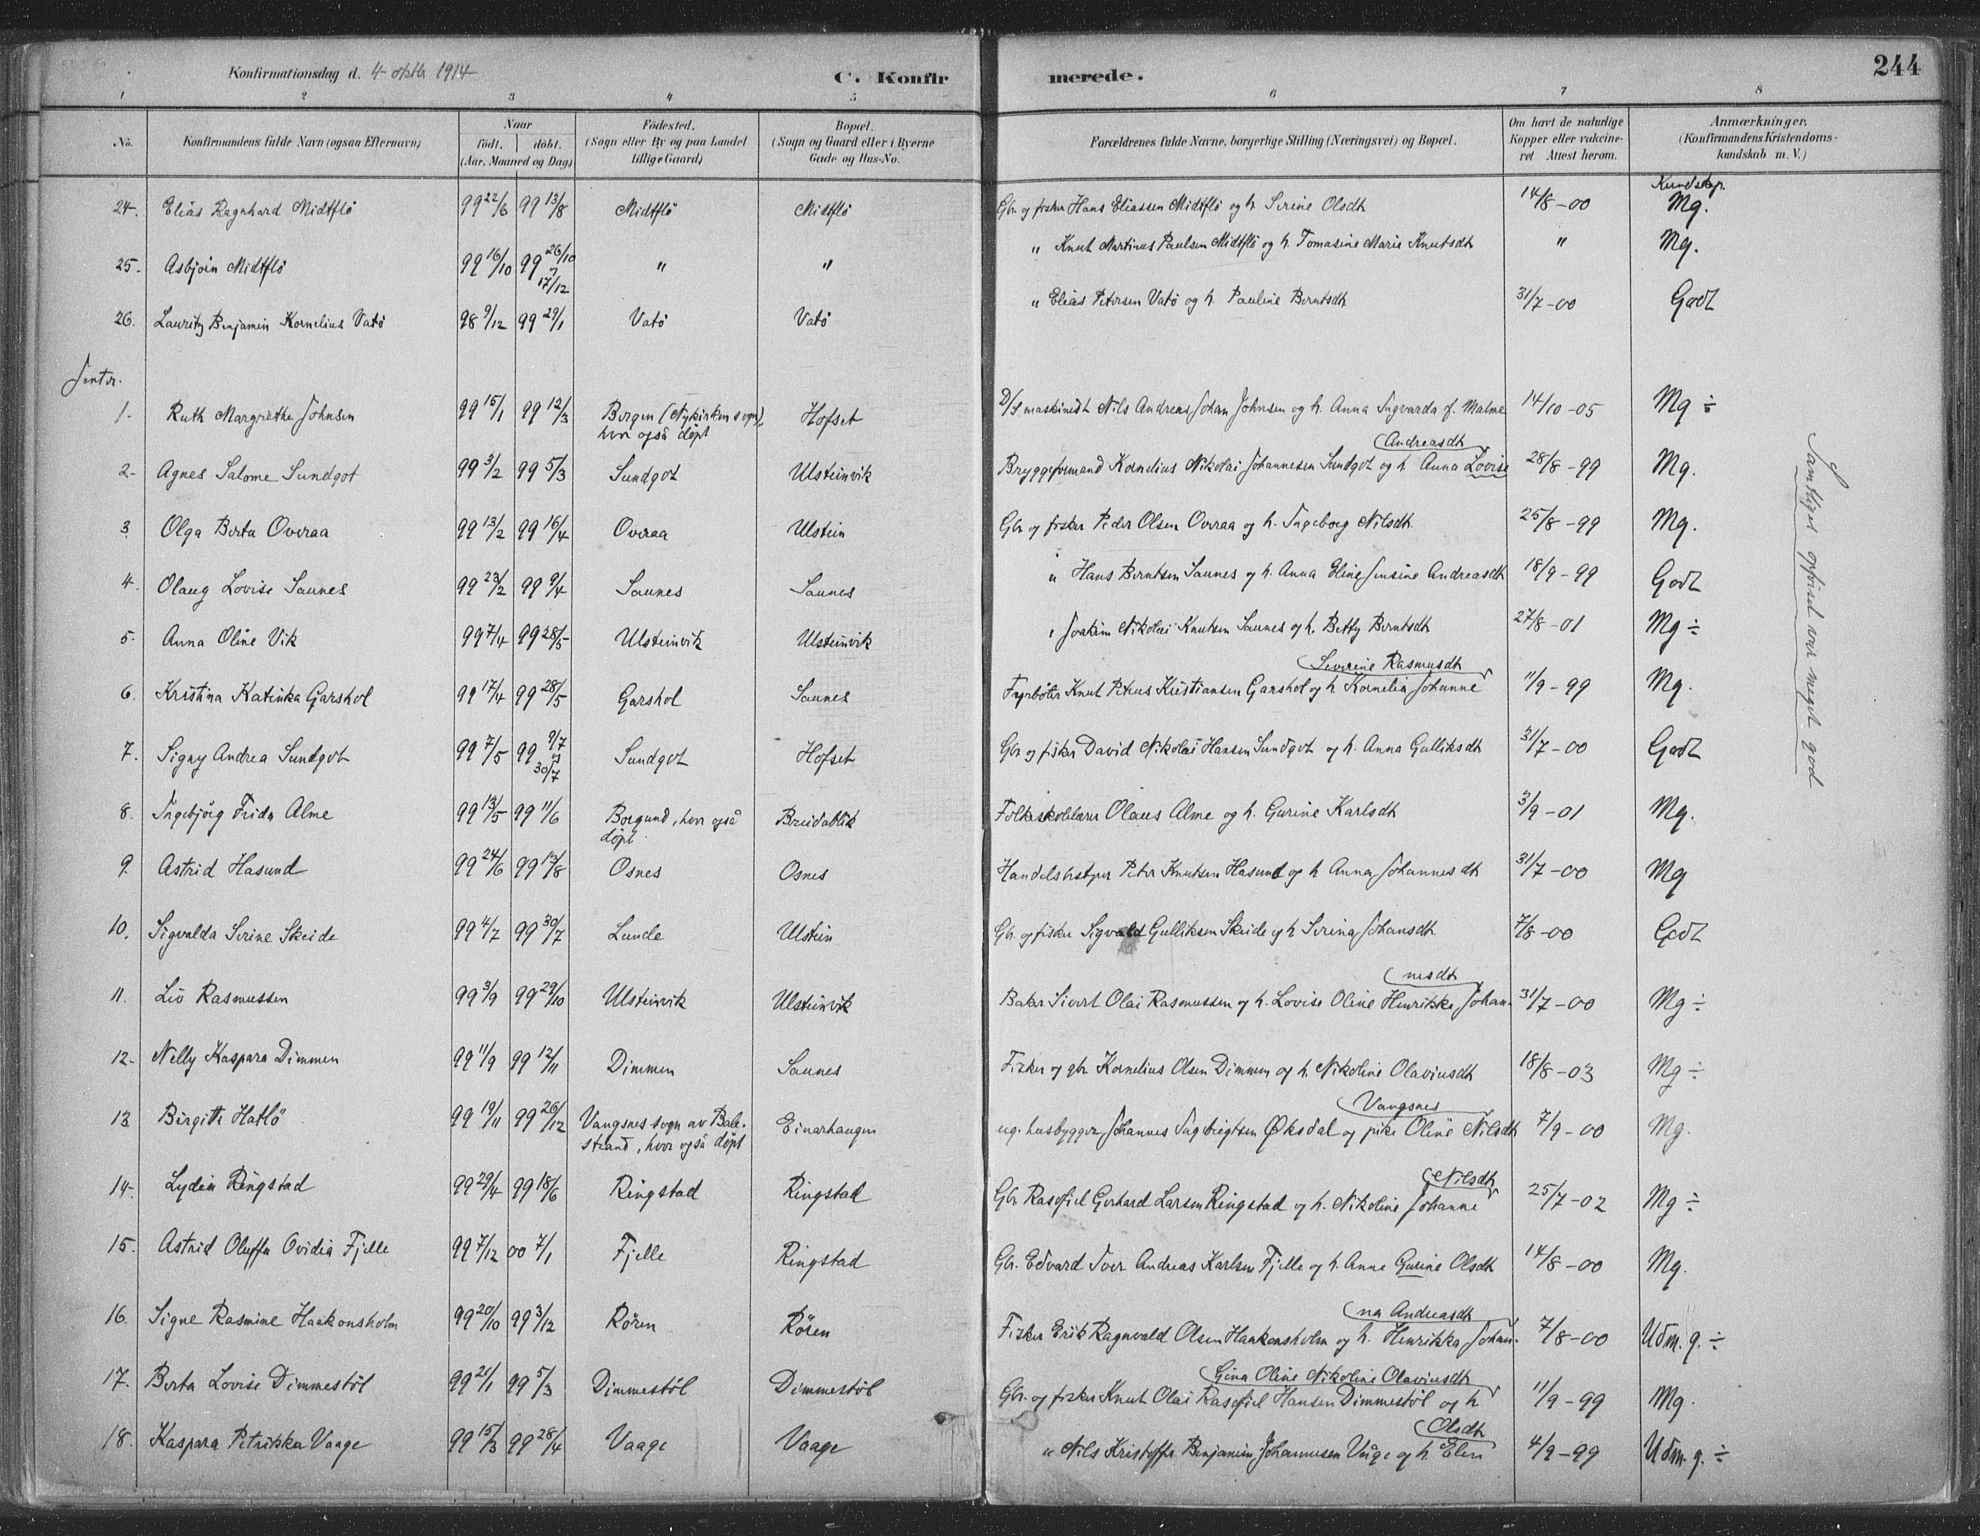 Konfirmationsdag d. 4 oktbr 1914
C. Konfirmerede.
244
1 2 3 4 5 6 7 8
No. Konfirmandens fulde Navn (ogsaa Efternavn) Naar født. døbt. (Aar, Maaned og Dag) Fødested. (Sogn eller By og paa Landet tillige Gaard) Bopæl. (Sogn og Gaard eller i Byerne Gade og Hus-No. Forældrenes fulde Navne, borgerlige Stilling (Næringsvei) og Bopæl. Om havt de naturlige Kopper eller vakcineret Attest herom. Anmærkninger. (Konfirmandens Kristendomskundskab m. V.)
Kundskap.
24. Elias Ragnhard Midtflø 99 22/6 99 13/8 Midtflø Midtflø Gbr og fisker Hans Eliassen Midtflø og h. Serine Olsdt 14/8-00 Mg.
25. Asbjøin Midtflø 99 16/10 99 26/10 17/12 " " " Knut Martinus Paulsen Midtflø og h. Tomasine Marie Knutsdt " Mg.
26. Lauritz Benjamin Kornelius Vatø 98 9/12 99 29/1 Vatø Vatø " Elias Petersen Vatø og h. Pauline Berntsdt 31/7-00 Godt
Jenter.
1. Ruth Margrethe Johnsen 99 15/1 99 12/3 Bergen (Nykirkens sogn), hvor også døpt Hofset D/S maskinist Nils Andreas Johan Johnsen og h. Anna Ingvarda f. Malme 14/10-05 Mg ÷
2. Agnes Salome Sundgot 99 3/2 99 5/3 Sundgot Ulsteinvik Bryggeformand Kornelius Nikolai Johannesen Sundgot og h. Anna Lovise Andreasdt 28/8-99 Mg.
3 Olga Berta Overaa 99 13/2 99 16/4 Overaa Ulstein Gbr og fisker Peder Olsen Overaa og h. Ingeborg Nilsdt 25/8-99 Mg.
4. Olaug Lovise Saunes 99 23/2 99 9/4 Saunes Saunes " Hans Berntsen Saunes og h. Anna Eline Jensine Andreasdt 18/9-99 Godt
5. Anna Oline Vik 99 7/4 99 28/5 Ulsteinvik Ulsteinvik " Joakim Nikolai Knutsen Saunes og h. Betty Berntsdt 27/8-01 Mg ÷
6. Kristina Katinka Garshol 99 17/4 99 28/5 Garshol Saunes Fyrbøter Knut Petrus Kristiansen Garshol og h. Kornelia Johanne Severine Rasmusdt 11/9-99 Mg.
7. Signy Andrea Sundgot 99 7/5 99 9/7 30/7 Sundgot Hofset Gbr og fisker David Nikolai Hansen Sundgot og h. Anna Gulliksdt 31/7-00 Godt
8. Ingebjørg Frida Alme 99 13/5 99 11/6 Borgund, hvor også døpt Breidablik Folkeskolelærer Olaus Alme og h. Gurine Karlsdt 3/9-01 Mg.
9. Astrid Hasund 99 24/6 99 13/8 Osnes Osnes Handelsbestyrer Peter Knutsen Hasund og h Anna Johannesdt 31/7-00 Mg
10. Sigvalda Serine Skeide 99 4/7 99 30/7 Lunde Ulstein Gbr. og fisker Sigvald Gulliksen Skeide og h Serina Johansdt 7/8-00 Godt
11. Liv Rasmussen 99 3/9 99 29/10 Ulsteinvik Ulsteinvik Baker Sivert Olai Rasmussen og h. Lovise Oline Henrikke Johannesdt 31/7-00 Mg ÷
12. Nelly Kaspara Dimmen 99 11/9 99 12/11 Dimmen Saunes Fisker og gbr Kornelius Olsen Dimmen og h. Nikoline Olaviusdt 18/8-03 Mg ÷
13 Birgith Hatlø 99 19/11 99 26/12 Vangsnes sogn av Balestrand, hvor også døpt Einarhaugen ug. husbygger Johannes Ingebrigtsen Øksdal og pike Oline Nilsdt Vangsnes 7/9-00 Mg.
14. Lydia Ringstad 99 29/4 99 18/6 Ringstad Ringstad Gbr Rasofiel Gerhard Larsen Ringstad og h. Nikoline Johanne Nilsdt 25/7-02 Mg ÷
15. Astrid Oluffa Ovidia Fjelle 99 7/12 00 7/1 Fjelle Ringstad Gbr. Edvard Iver Andreas Karlsen Fjelle og h. Anne Gurine Olsdt 14/8-00 Mg.
16. Signe Rasmine Haakonsholm 99 20/10 99 3/12 Røren Røren Fisker Erik Ragnvald Olsen Haakonsholm og h. Henrikka Johanna Andreasdt 7/8-00 Udm. g. ÷
17. Berta Lovise Dimmestøl 99 21/1 99 5/3 Dimmestøl Dimmestøl Gbr. og fisker Knut Olai Rasofiel Hansen Dimmestøl og h Gina Oline Nikoline Olaviusdt 11/9-99 Mg.
18. Kaspara Petrikka Vaage 99 15/3 99 28/4 Vaage Vaage " Nils Kristoffer Benjamin Johannesen Våge og h. Elen Olsdt 4/9-99 Udm. g. ÷
Samtliges opførsel var meget god